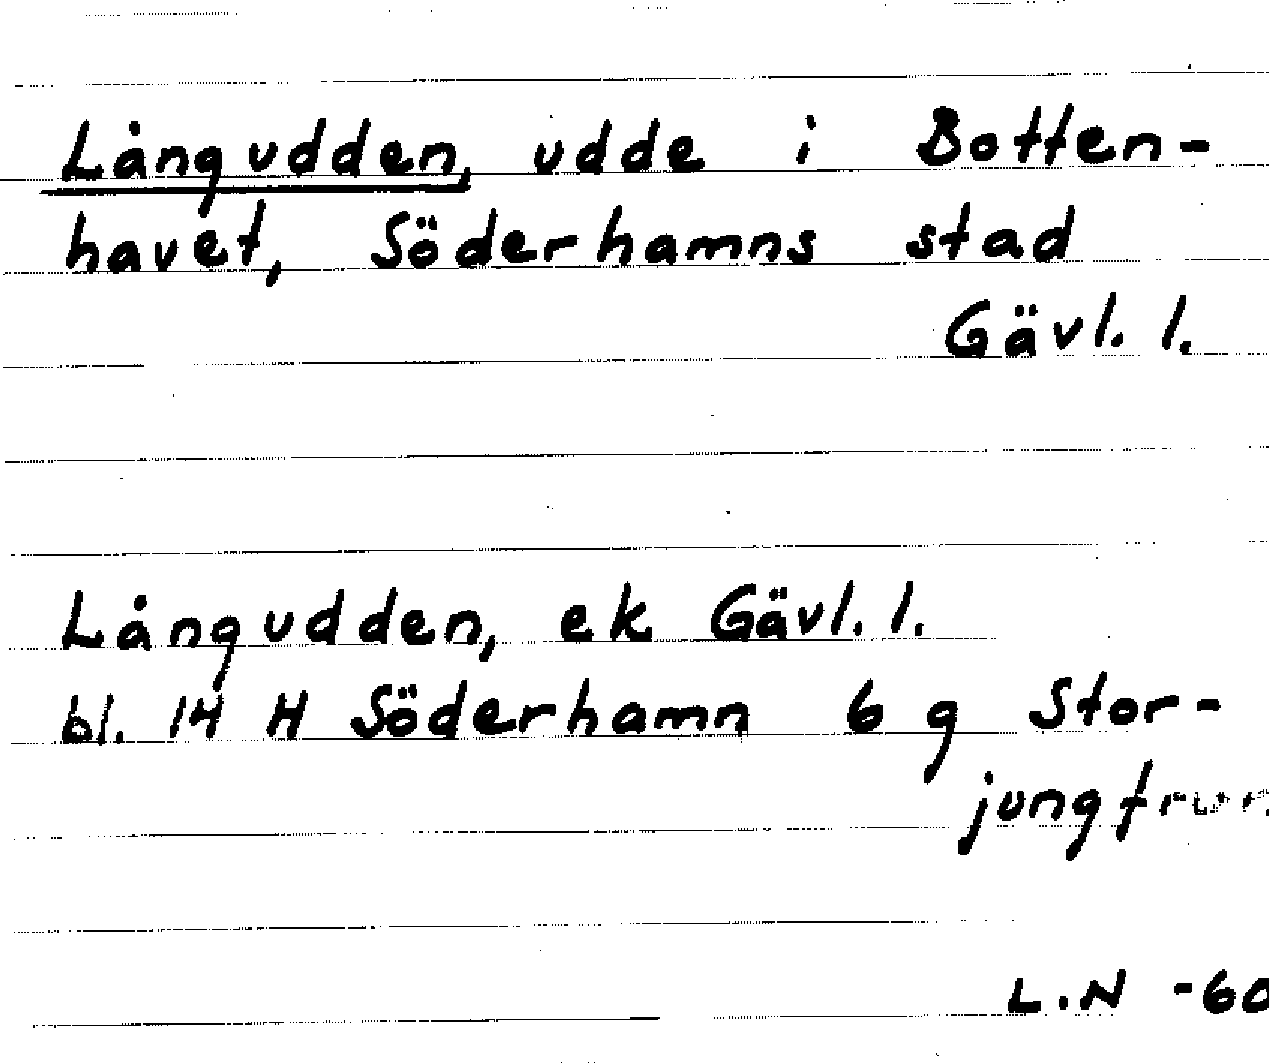 Långudden, udde i Botten-
havet, Söderhamns stad
Gävl. l.
Långudden, ek Gävl. l.
bl. 14 H Söderhamn 6 g Stor-
jungfrun
L.N -60